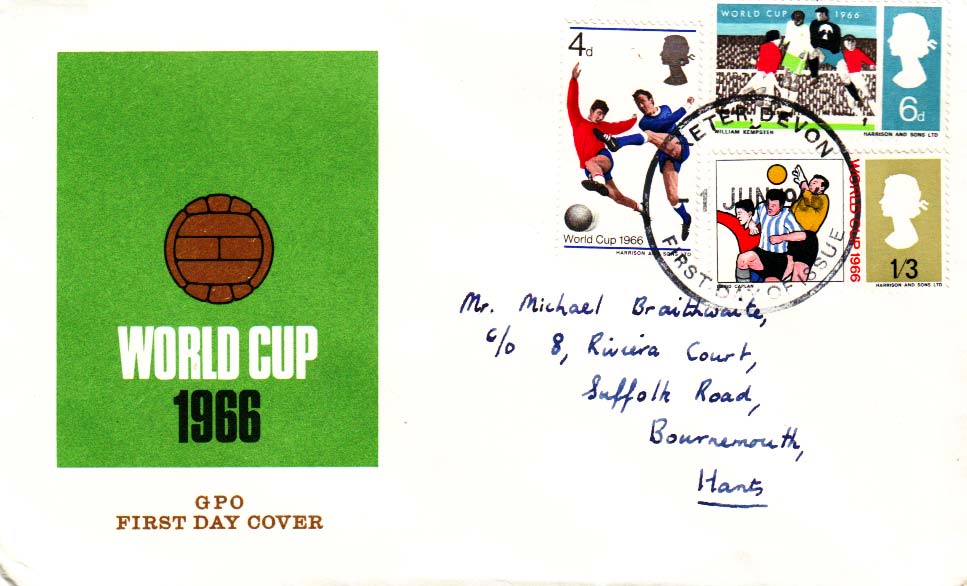 WORLD CUP
1966
GPO
FIRST DAY COVER
4d
World Cup 1966
HARRISON AND SONS LTD
WORLD CUP 1966
6d
WILLIAM KEMPSTER
HARRISON AND SONS LTD
WORLD CUP 1966
1/3
DAVID CAPLAN
HARRISON AND SONS LTD
EXETER, DEVON
1 JUN 1966
FIRST DAY OF ISSUE
Mr. Michael Braithwaite,
c/o 8, Riviera Court,
Suffolk Road,
Bournemouth,
Hants